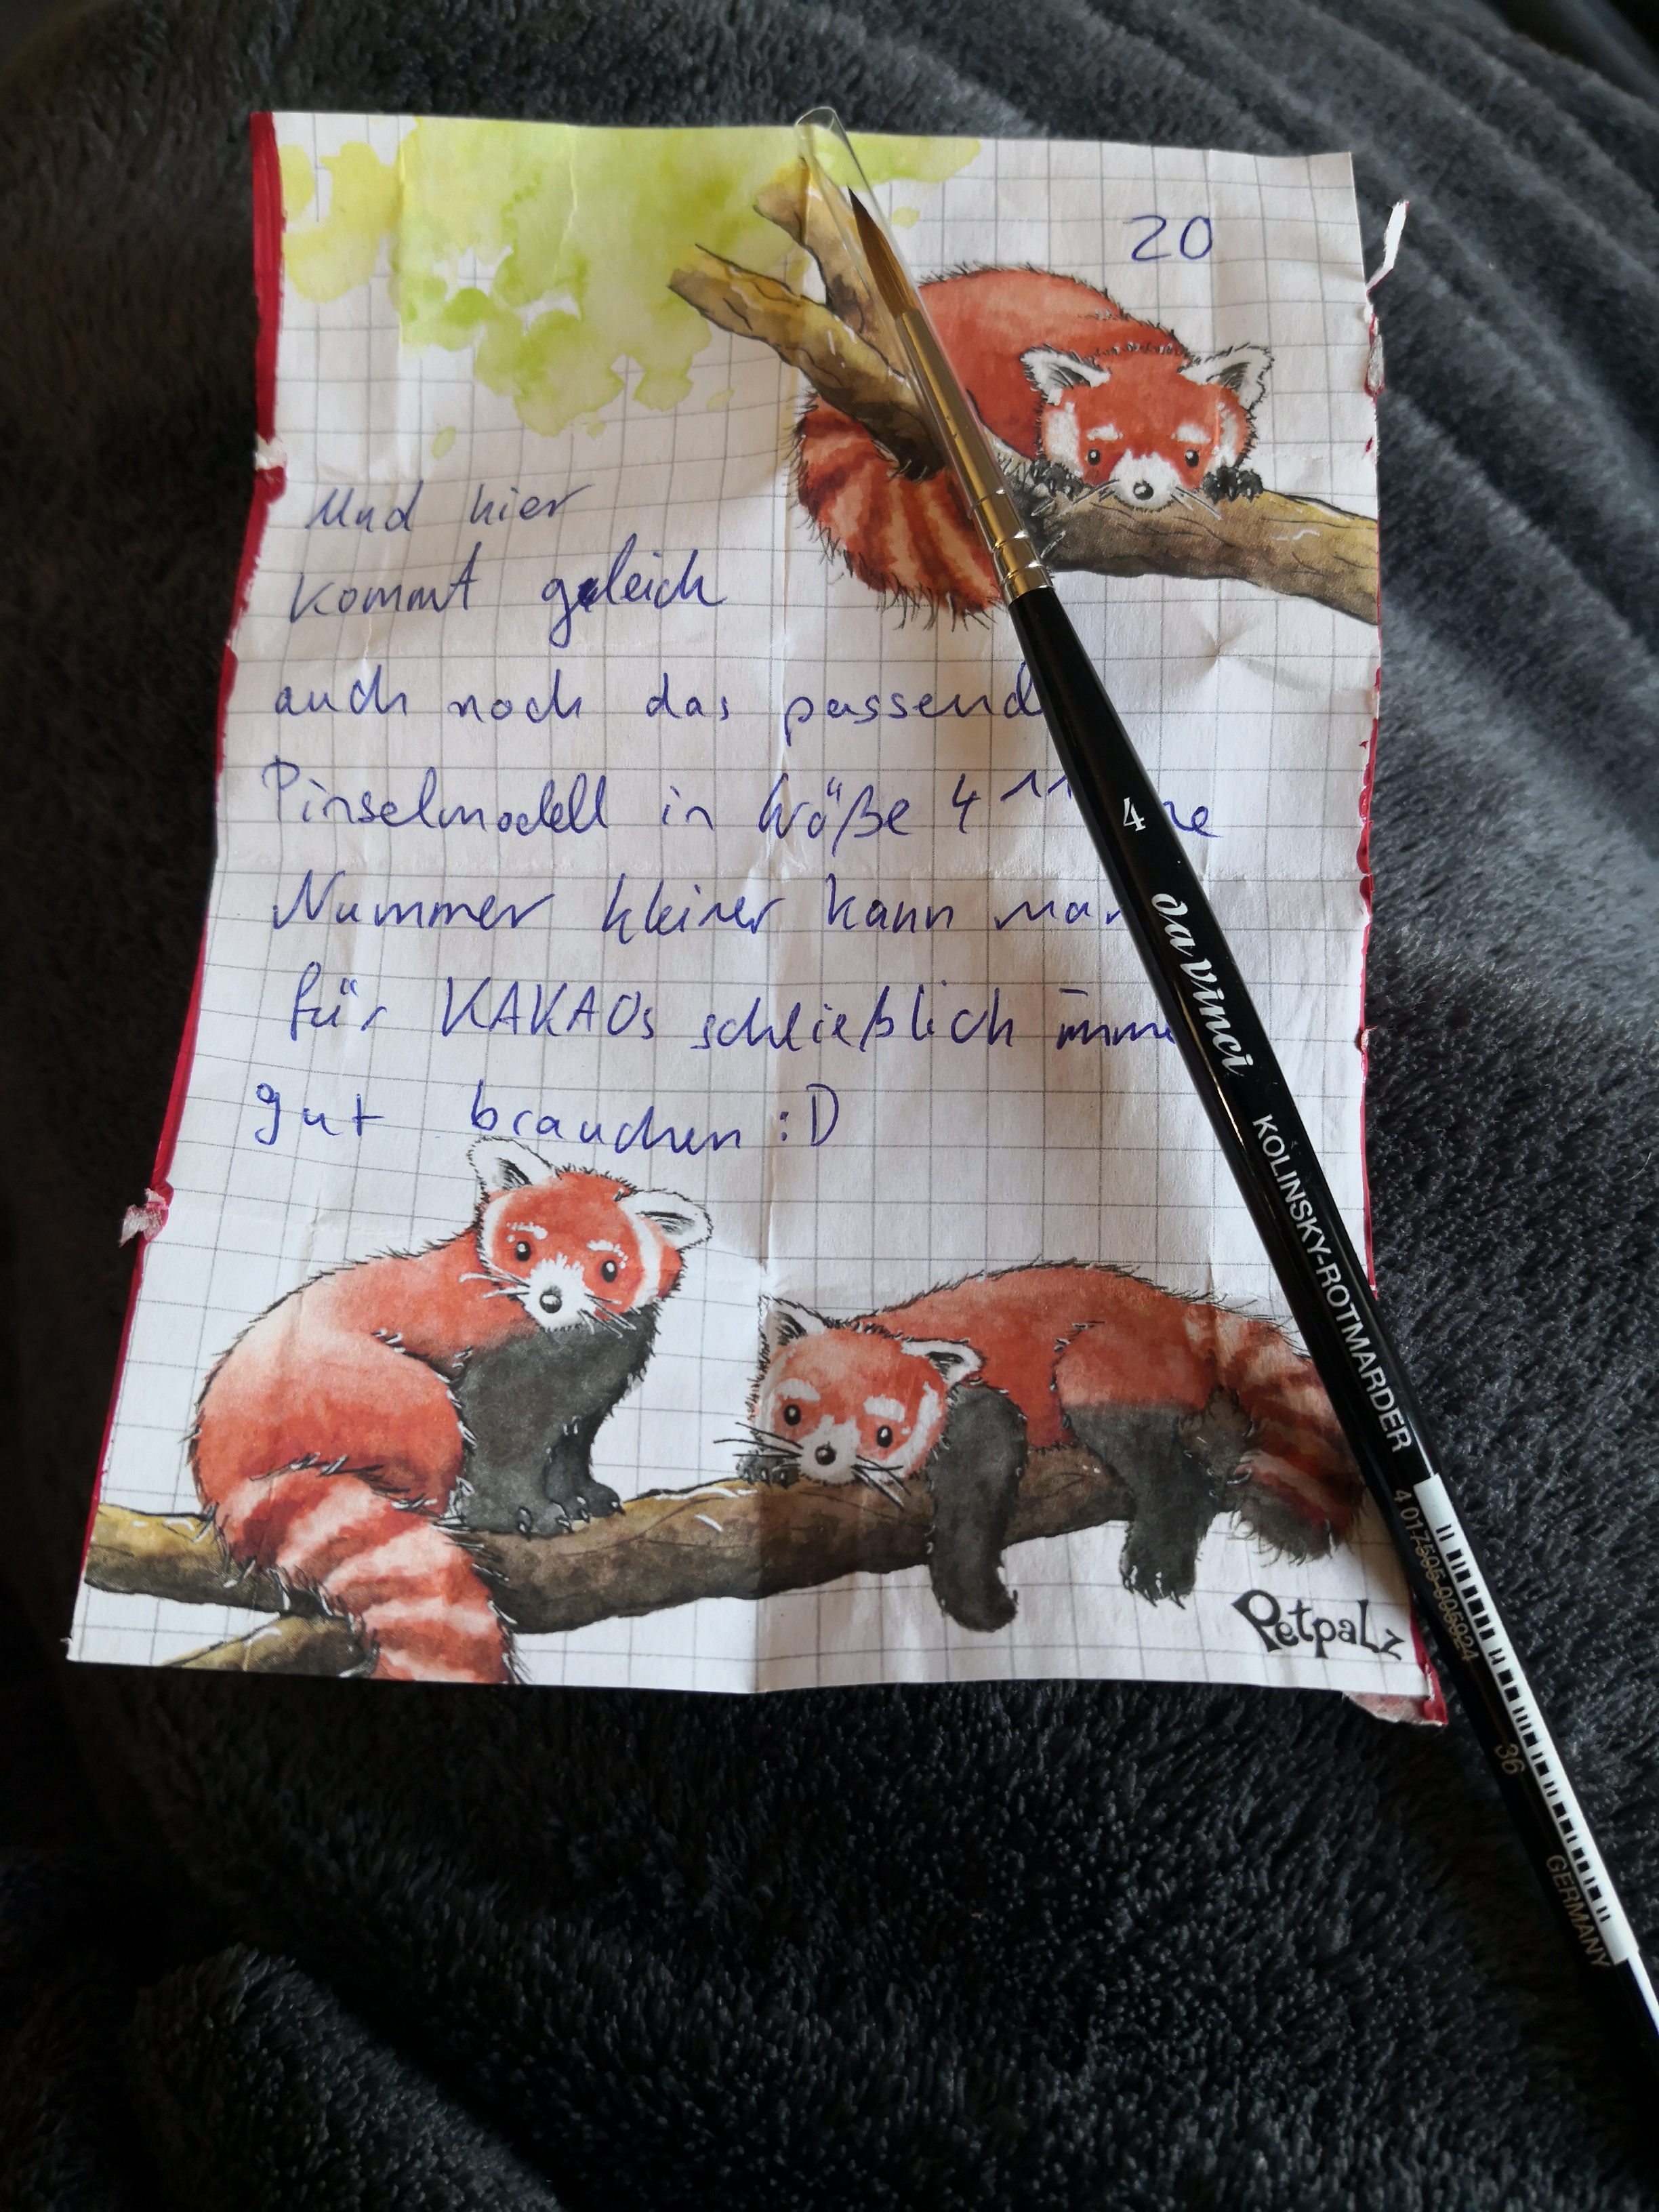 20
Und hier
kommt gleich
auch noch das passend
Pinselmodell in Größe 4
Nummer kleiner kann man
für KAKAOs schließlich imme
gut brauchen :D
Petpalz
4 da vinci KOLINSKY-ROTMARDER
4 017505 005924 36 GERMANY